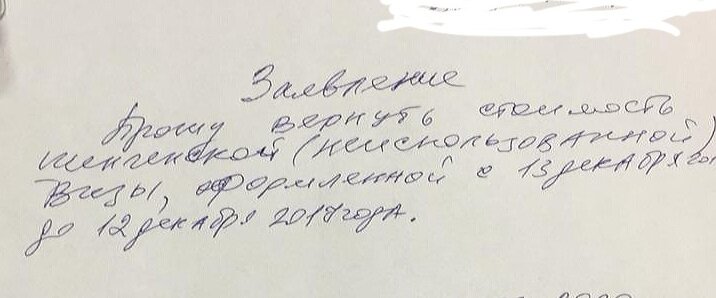 Заявление
Прошу вернуть стоимость
шенгенской (неиспользованной)
визы, оформленной с 13 декабря
до 12 декабря 2017 года.